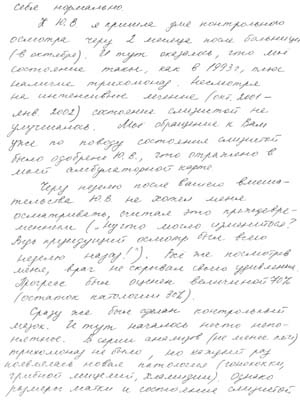 себя нормально
К Ю.В. я пришла для контрольного
осмотра через 2 месяца после больницы
(в октябре). И тут оказалось, что мое
состояние такое, как в 1993 г, плюс
наличие трихомонад. Несмотря
на интенсивное лечение (окт. 2001 -
янв. 2002) состояние слизистой не
улучшалось. Мое обращение к Вам
уже по поводу состояния слизистой
было одобрено Ю.В., что отражено в
моей амбулаторной карте.
Через неделю после вашего вмеша-
тельства Ю.В. не хотел меня
осматривать, считая это преждевре-
менным ("Что могло измениться?
Ведь предыдущий осмотр был всего
неделю назад!"). Все же посмотрев
меня, врач не скрывал своего удивления.
Прогресс был оценен величиной 70%
(остаток патологии 30%).
Сразу же был сделан контрольный
мазок. И тут началось нечто непо-
нятное. В серии анализов (не менее
трихомонад не было, но каждый раз
появлялась новая патология (гонококки,
грибной мицелий, хламидии). Однако
размеры матки и состояние слизистой